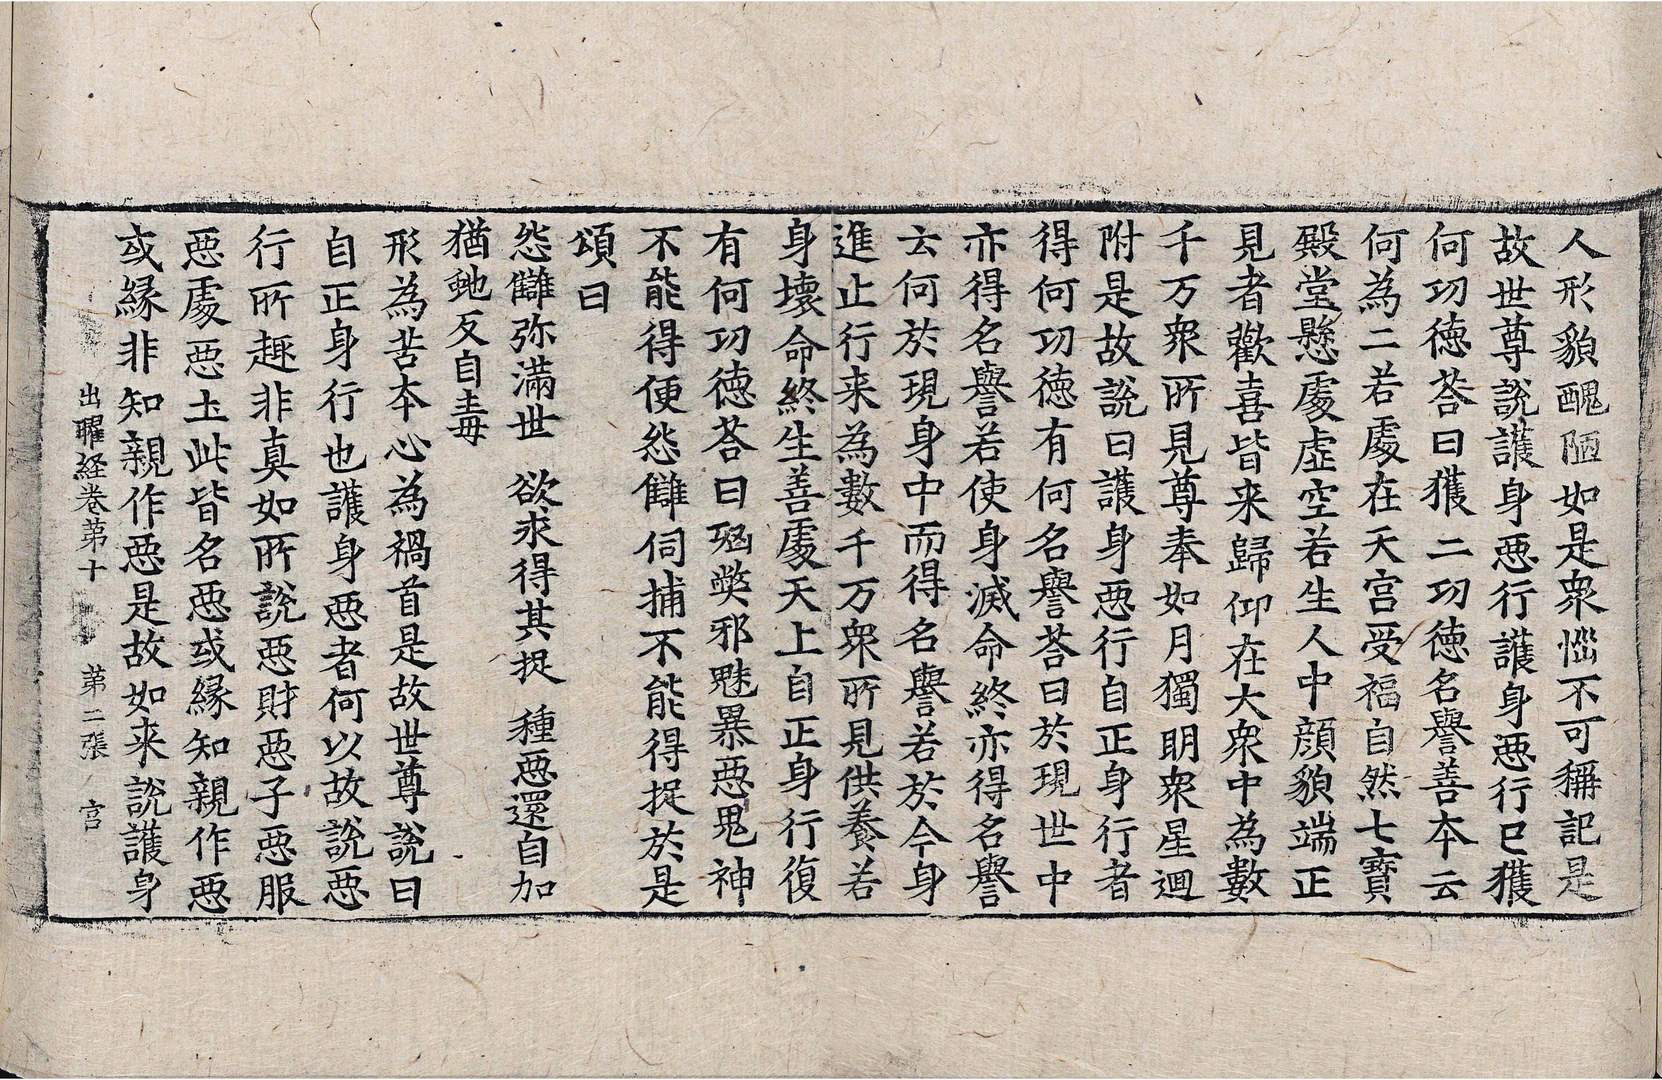 人形貌醜陋如是衆惱不可稱記是
故世尊說護身惡行護身惡行已獲
何功德荅曰獲二功德名譽善本云
何為二若處在天宮受福自然七寶
殿堂懸處虛空若生人中顔貌端正
見者歡喜皆来歸仰在大衆中為數
千万衆所見尊奉如月獨明衆星迴
附是故說曰護身惡行自正身行者
得何功德有何名譽荅曰於現世中
亦得名譽若使身滅命終亦得名譽
云何於現身中而得名譽若於今身
進止行来為數千万衆所見供養若
身壞命終生善處天上自正身行復
有何功德荅曰𠙖弊邪魅暴惡鬼神
不能得便怨讎伺捕不能得捉於是
頌曰
怨讎弥滿世　欲求得其捉　種惡還自加
猶虵反自毒
形為苦本心為禍首是故世尊說曰
自正身行也護身惡者何以故說惡
行所趣非真如所說惡財惡子惡服
惡處惡土此皆名惡或縁知親作惡
或縁非知親作惡是故如来說護身
出曜経卷第十　第二張　宫